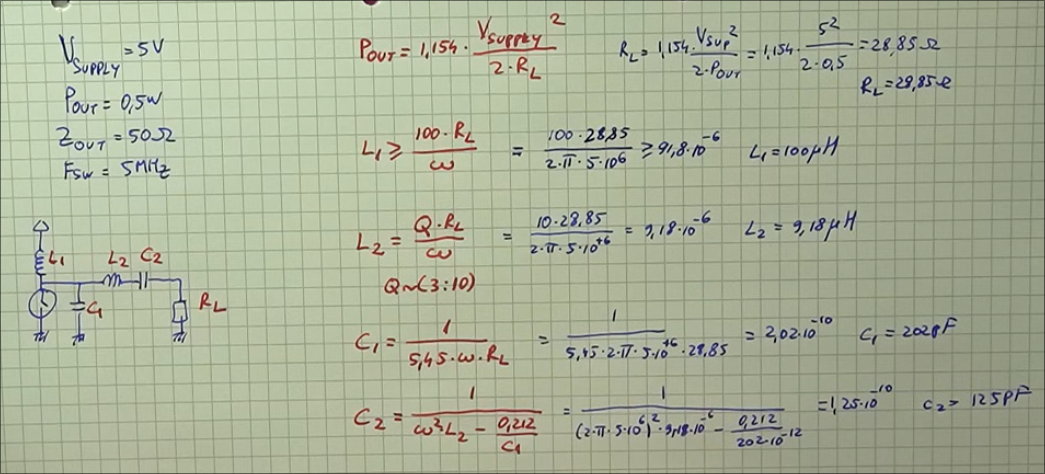 V_SUPPLY = 5V
P_OUT = 0,5W
Z_OUT = 50Ω
F_SW = 5MHz
P_OUT = 1,154 · V_SUPPLY² / 2 · R_L
R_L = 1,154 · V_SUP² / 2 · P_OUT = 1,154 · 5² / 2 · 0,5 = 28,85 Ω
R_L = 28,85 Ω
L₁ ≥ 100 · R_L / ω = 100 · 28,85 / 2 · π · 5 · 10⁶ ≥ 91,8 · 10⁻⁶ L₁ = 100µH
L₂ = Q · R_L / ω = 10 · 28,85 / 2 · π · 5 · 10⁺⁶ = 9,18 · 10⁻⁶ L₂ = 9,18µH
Q ~ (3:10)
C₁ = 1 / 5,45 · ω · R_L = 1 / 5,45 · 2 · π · 5 · 10⁺⁶ · 28,85 = 2,02 · 10⁻¹⁰ C₁ = 202pF
C₂ = 1 / ω² L₂ - 0,212 / C₁ = 1 / (2 · π · 5 · 10⁶)² · 9,18 · 10⁻⁶ - 0,212 / 202 · 10⁻¹² = 1,25 · 10⁻¹⁰ C₂ = 125pF
L₁
L₂ C₂
C₁
R_L